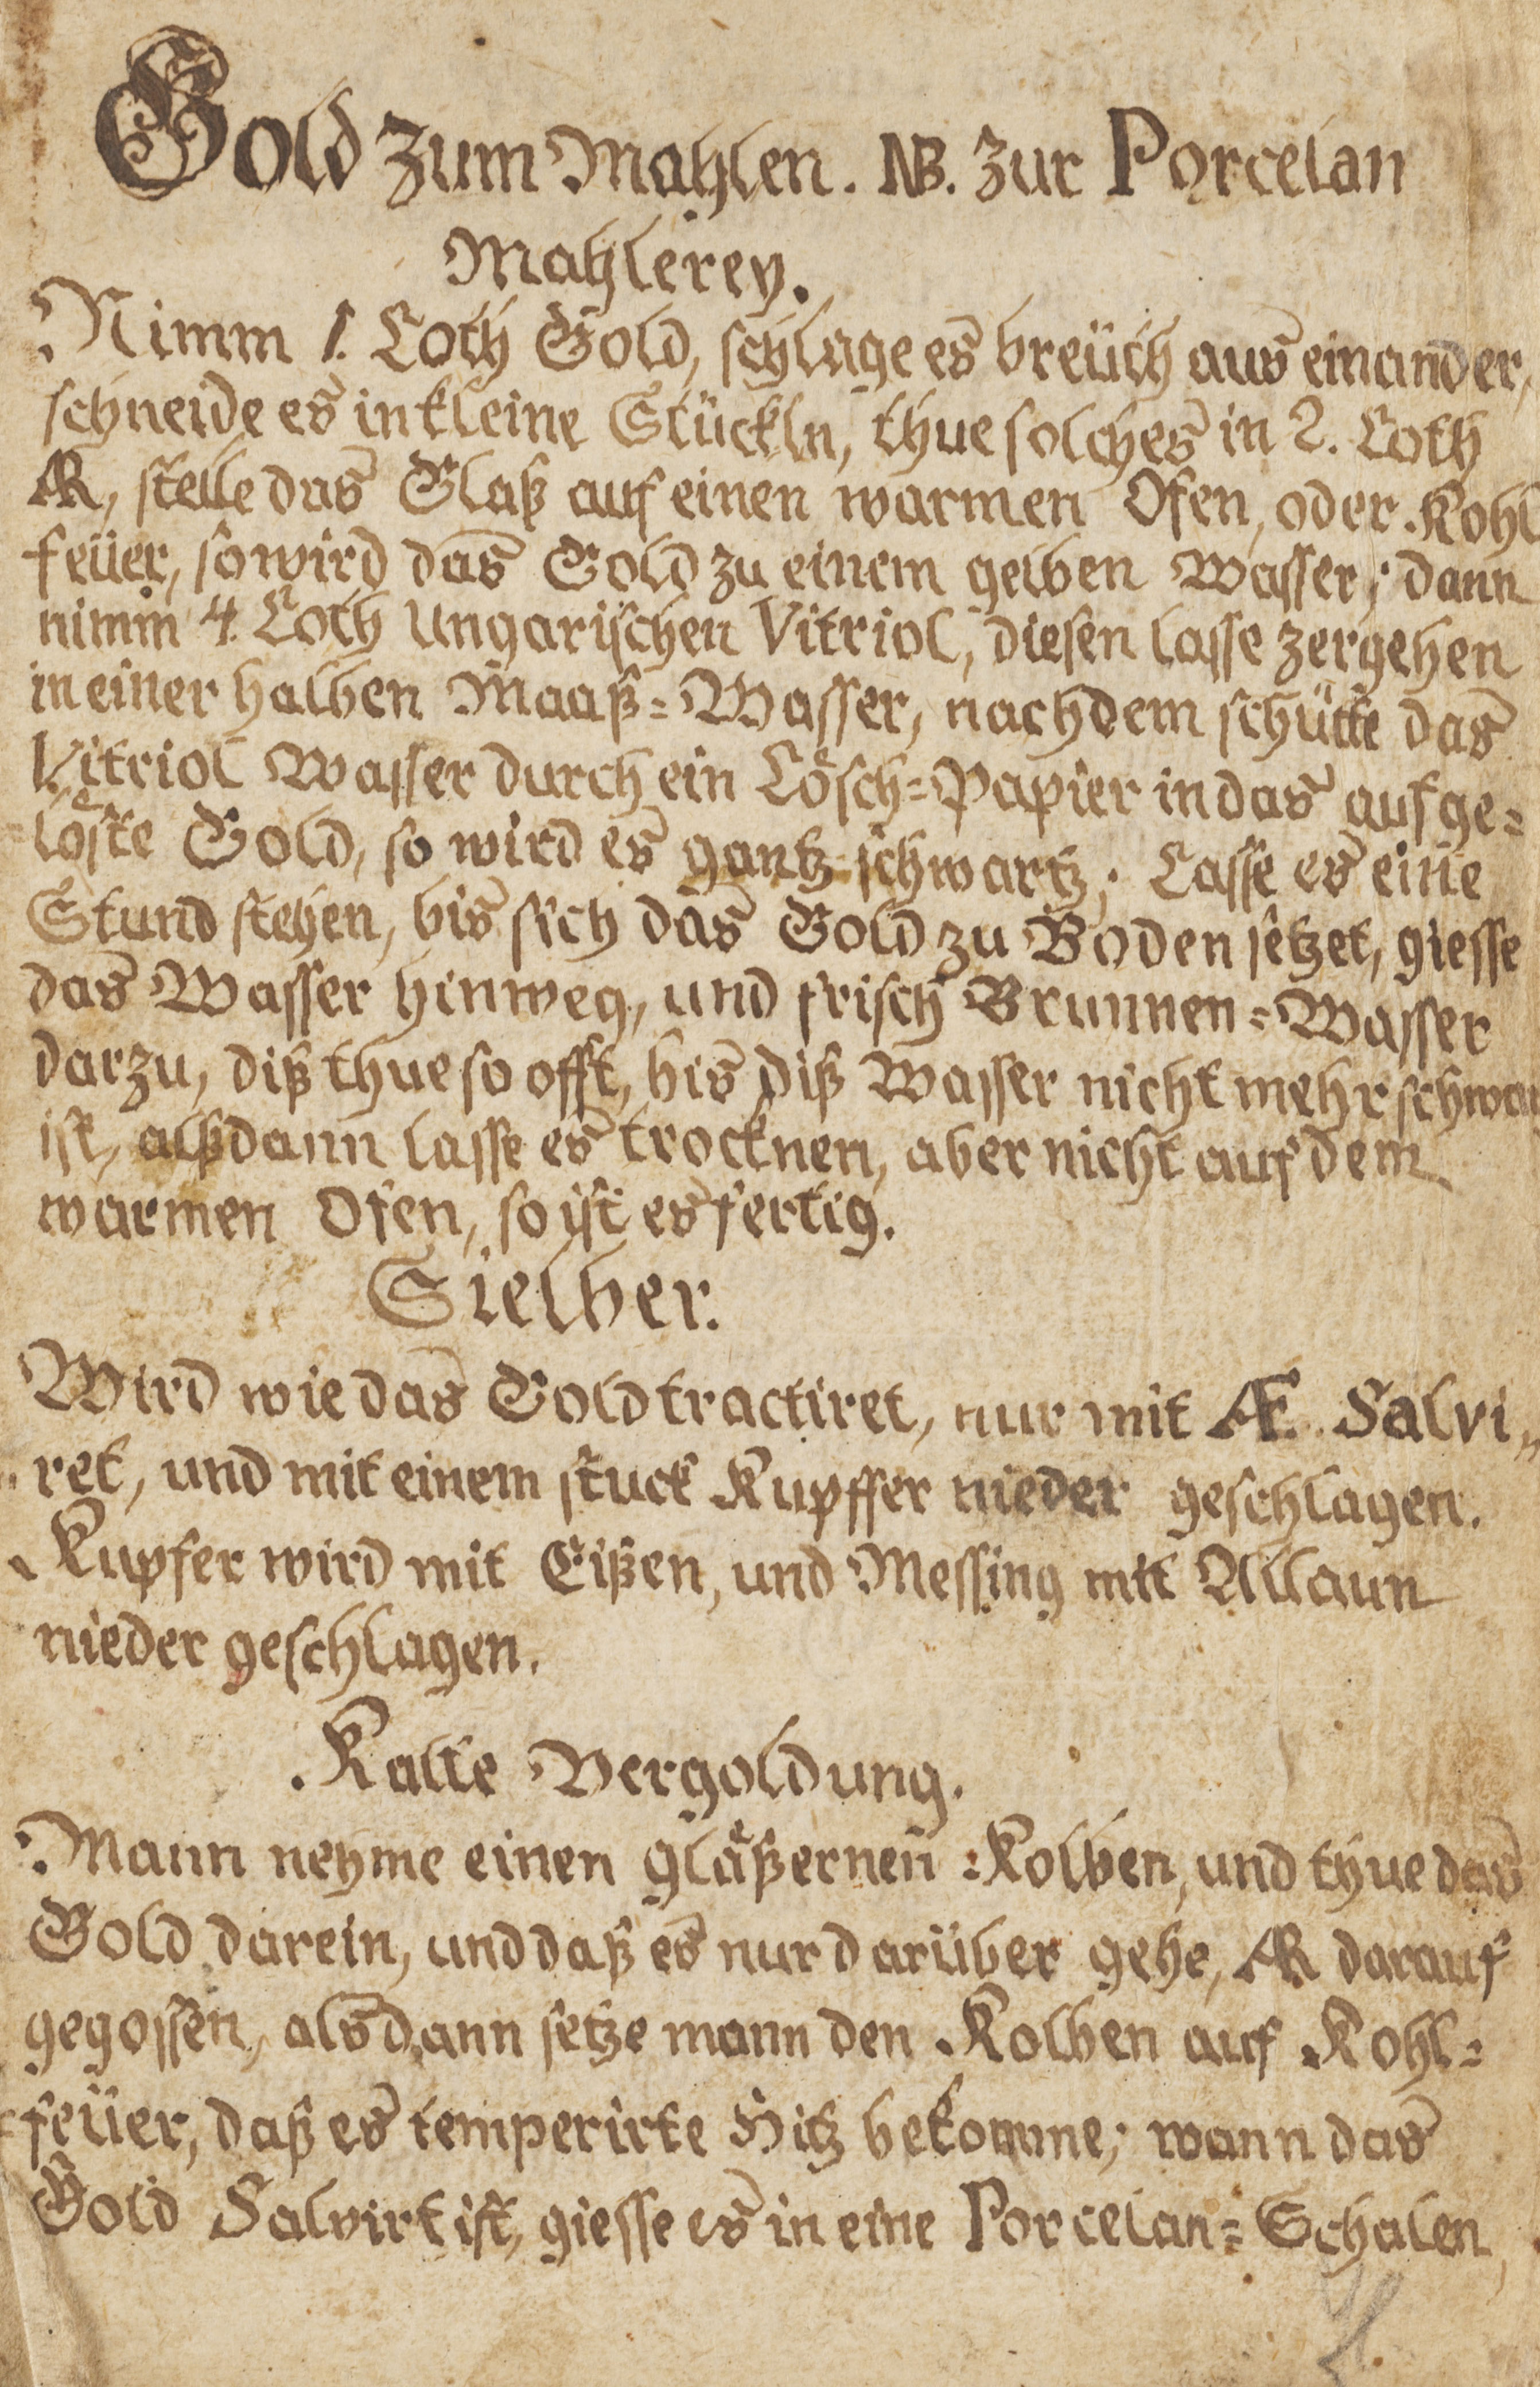 Gold zum Mahlen. NB. zur Porcelan
Mahlerey.
Nimm 1. Loth Gold, schlage es breüth aus einander,
schneide es in kleine Stückln, thue solches in 2. Loth
AR, stelle das Glaß auf einen warmen Ofen, oder Kohl
feüer, so wird das Gold zu einem gelben Wasser; dann
nimm 4. Loth Ungarischen Vitriol, diesen lasse zergehen
in einer halben Maaß=Wasser, nachdem schütte das
Vitriol Wasser durch ein Lösch=Papier in das aufge=
löste Gold, so wird es gantz schwartz; Lasse es eine
Stund stehen, bis sich das Gold zu Boden setzet, giesse
das Wasser hinweg, und frisch Brunnen=Wasser
darzu, diß thue so offt, bis diß Wasser nicht mehr schwar
ist, alßdann lasse es trocknen, aber nicht auf dem
warmen Ofen, so ist es fertig.
Sielber.
Wird wie das Gold tractiret, nur mit AF. Salvi„
ret, und mit einem stuck Kupffer nieder geschlagen.
Kupfer wird mit Eißen, und Messing mit Allaun
nieder geschlagen.
Kalte Vergoldung.
Mann nehme einen gläßernen Kolben, und thue das
Gold darein, und daß es nur darüber gehe, AR darauf
gegossen, alsdann setze mann den Kolben auf Kohl=
feüer, daß es temperirte Hitz bekomme; wann das
Gold Salvirt ist, giesse es in eine Porcelan=Schalen